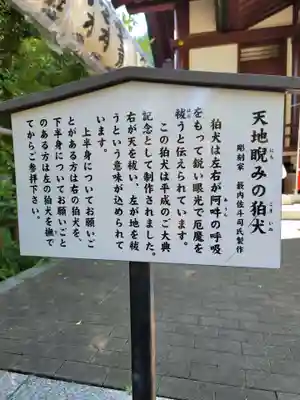 天地睨みの狛犬
にら
こま いぬ
彫刻家 籔内佐斗司氏製作
狛犬は左右が阿吽の呼吸
あうん
をもって鋭い眼光で厄魔を
祓うと伝えられています。
はら
この狛犬は平成のご大典
記念として制作されました。
右が天を祓い、左が地を祓
うという意味が込められて
います。
上半身についてお願いご
とがある方は右の狛犬を、
下半身についてお願いごと
のある方は左の狛犬を撫で
な
てからご参拝下さい。